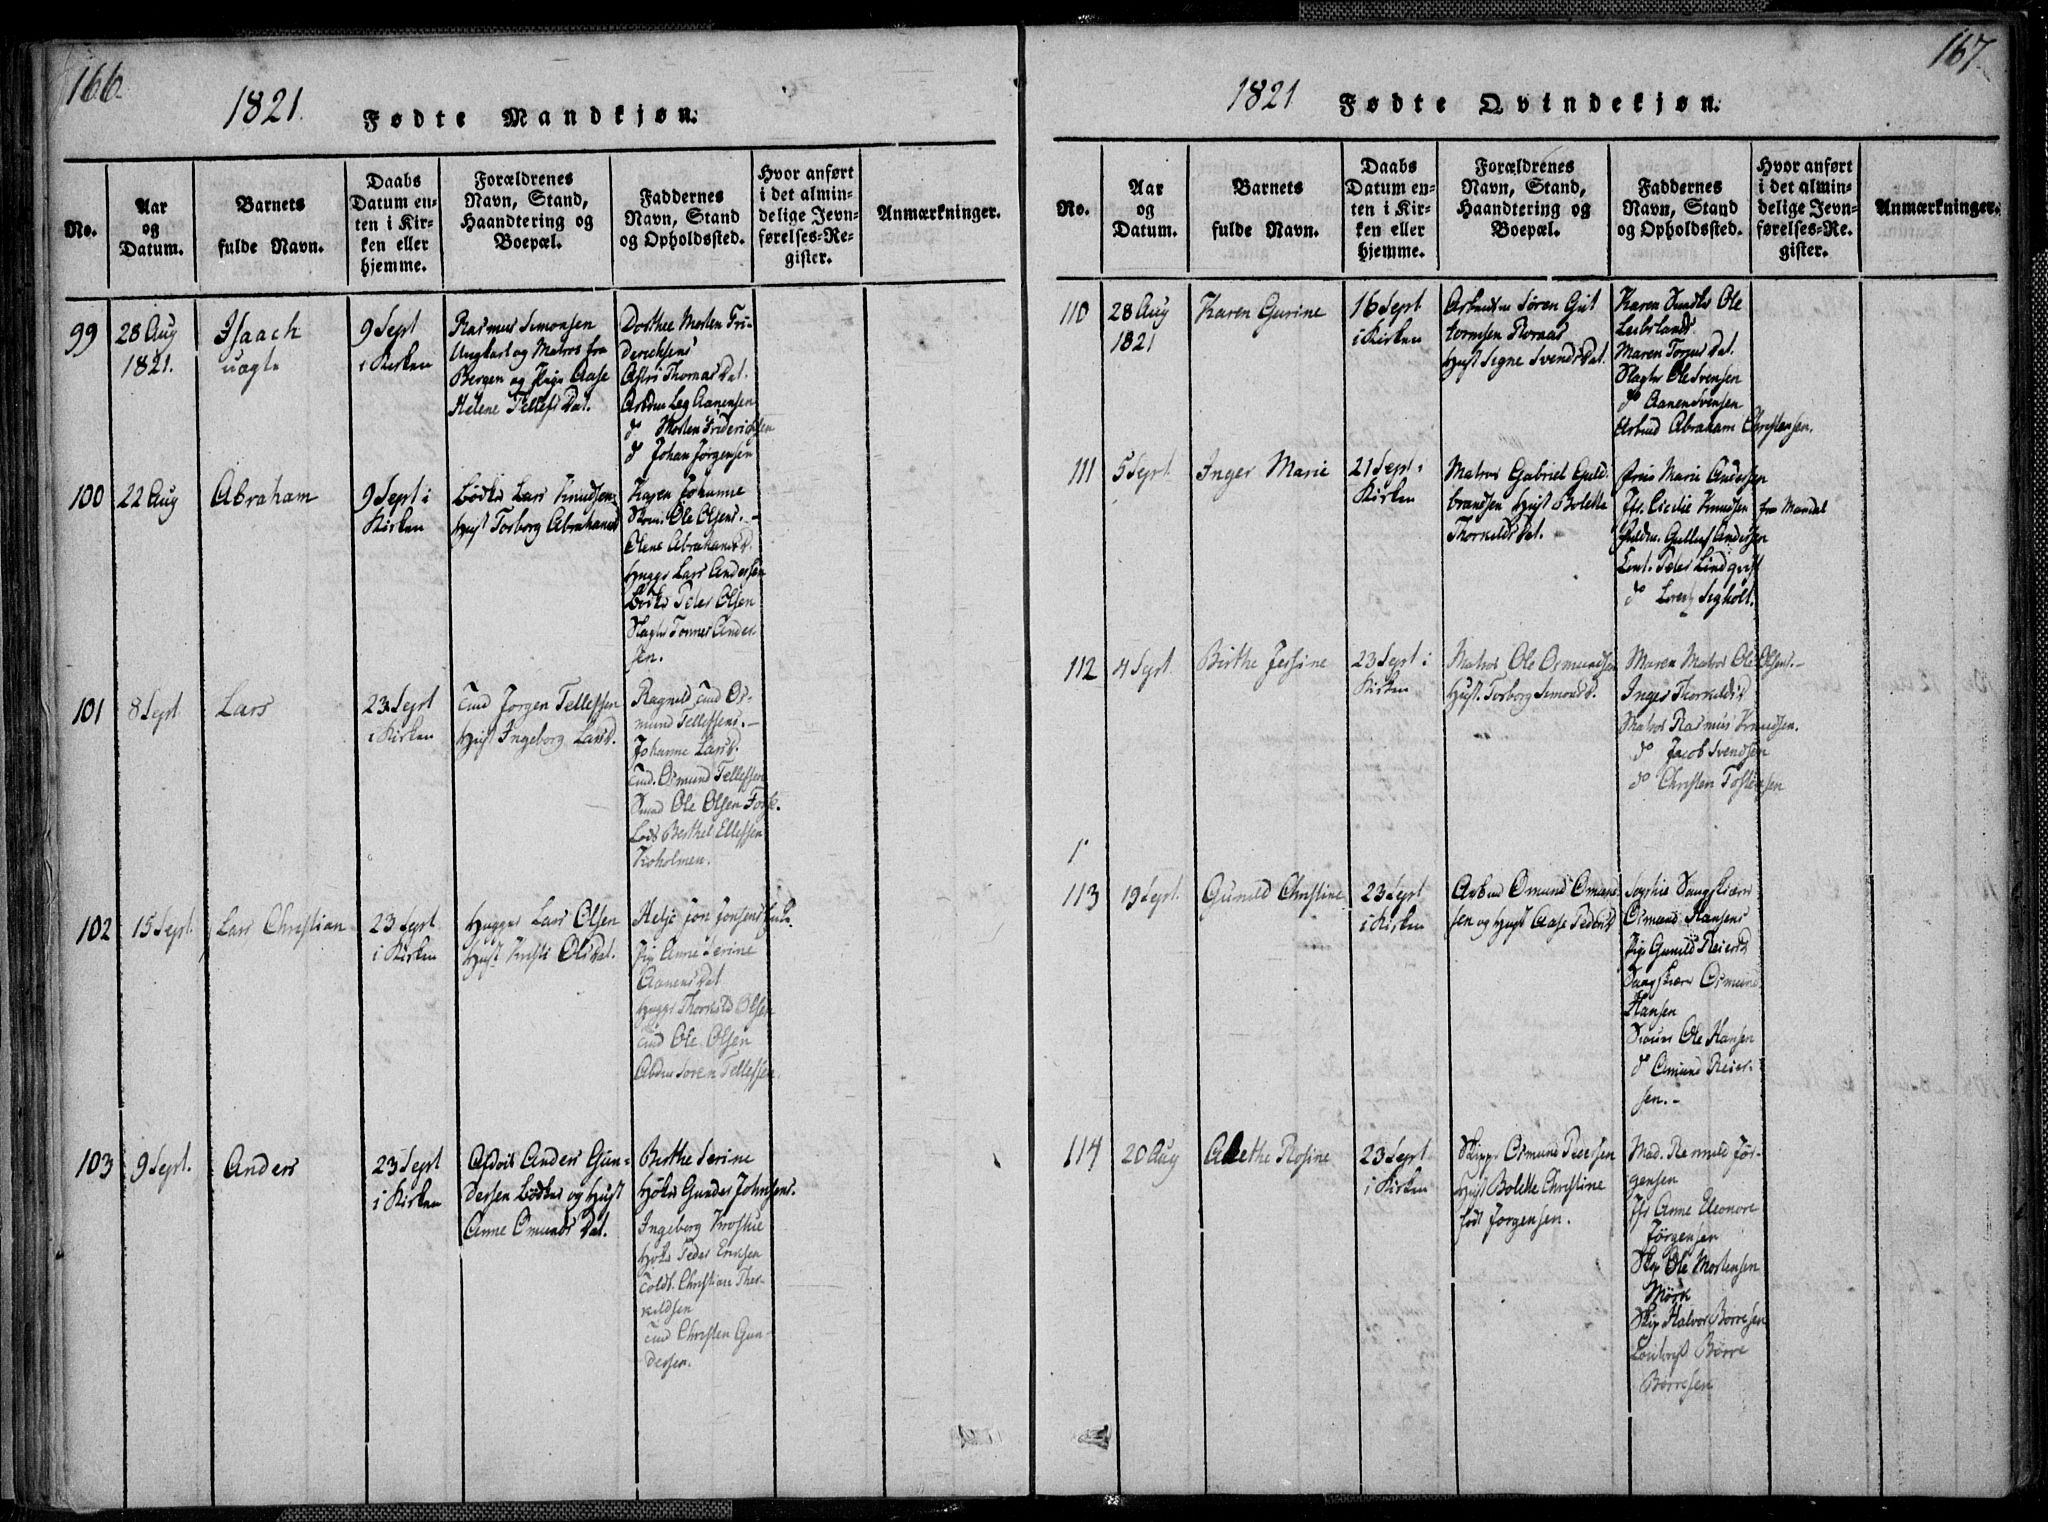 166.
1821. Fødte Mandkjøn.
No.
Aar
og
Datum.
Barnets
fulde Navn.
Daabs
Datum en-
ten i Kir-
ken eller
hjemme.
Forældrenes
Navn, Stand,
Haandtering og
Boepæl.
Faddernes
Navn, Stand
og Opholdssted.
Hvor anført
i det almin-
delige Jevn-
førelses-Re-
gister.
Anmærkninger.
99
28 Aug
1821.
Isaach
uægte
9 Sept
i Kirken
Rasmus Simonsen
Ungkarl og Matros fra
Bergen og Pige Aase
Helene Tellefs Dat.
Dorthee Morten Fri-
derichsens
Astri Thomas Dat.
Arbdm Leg Aanensen
do Morten Friderichsen
do Johan Jørgensen
100
22 Aug
Abraham
9 Sept i
Kirken
Bødker Lars Knudsen
Hust Torborg Abrahamsd
Karen Johanne
Ole Olsens.-
Olene Abrahamsd.
Hugger Lars Andersen
Bødker Peder Olsen
Slagter Tønnes Ander-
sen.
101
8 Sept
Lars
23 Sept
i Kirken
Jørgen Tellefsen
Hust Ingeborg Larsd.
Ragnild Os-
mund Tellefsens.-
Johanne Larsd.
Osmund Tellefsen
Ole Olsen
Lods Berthel Ellefsen
102
15 Sept.
Lars Christian
23 Sept
i Kirken
Hugger Lars Olsen
Hust Kristi Ols Dat.
Helje Jon Jonsens
Pige Anne Serine
Aanens Dat
Hugger Thorkild Olsen
Ole Olsen
Søren Tellefsen
103
9 Sept.
Anders
23 Sept
i Kirken
Anders Gun-
dersen Bødker og Hust
Anne Osmunds Dat.
Berthe Serine
Høker Gunder Johnsens.
Ingeborg
Høker Peder Ericsen
Toldb. Christian Ther-
kildsen
Christen Gun-
dersen.
167.
1821 Fødte Qvindekjøn.
No.
Aar
og
Datum.
Barnets
fulde Navn.
Daabs
Datum en-
ten i Kir-
ken eller
hjemme.
Forældrenes
Navn, Stand,
Haandtering og
Boepæl.
Faddernes
Navn, Stand
og Opholdssted.
Hvor anført
i det almin-
delige Jevn-
førelses-Re-
gister.
Anmærkninger.
110
28 Aug
1821
Karen Gurine
16 Sept
i Kirken
Søren Gut
tormsen
Hust Segne Svends Dat.
Karen Ole
Maren Torjus Dat.
Slagter Ole Svensen
do Aanen Svensen
Arbmd Abraham Christensen.
111
5 Sept.
Inger Marie
21 Sept i
Kirken
Matros Gabriel Guld-
brandsen Hust Bolette
Thorkilds Dat.
Frue Marie Andersen
Jfr. Cicilie Knudsen fra Mandal
Andersen
Peder Lindqvist
do
112
4 Sept
Birthe Jesine
23 Sept i
Kirken
Matros Ole Osmundsen
Hust. Torborg Simonsd.
Maren Matros Ole Olsens.-
Inger Thorkildsd
Matros Rasmus Knudsen.
do Jacob Svendsen
do Christen Tostensen
1
113
19 Sept.
Gunild Christine
23 Sept
i Kirken
Osmund Omun
sen og Hust Aase Peders
Sophie
Osmund Hansens
Pige Gunild Reiersd
Osmund
Hansen
Ole Hansen
do Amund Reier-
sen.-
114
20 Aug
Alethe Rosine
23 Sept
i Kirken
Skipper Osmund Pedersen
Hust Bolette Christine
født Jørgensen.
Mad. Jør-
gensen
Jfr Anne Eleonore
Jørgensen
Skip Ole Mortensen
Mørk
Skip Halvor Børresen
Børre
Børresen